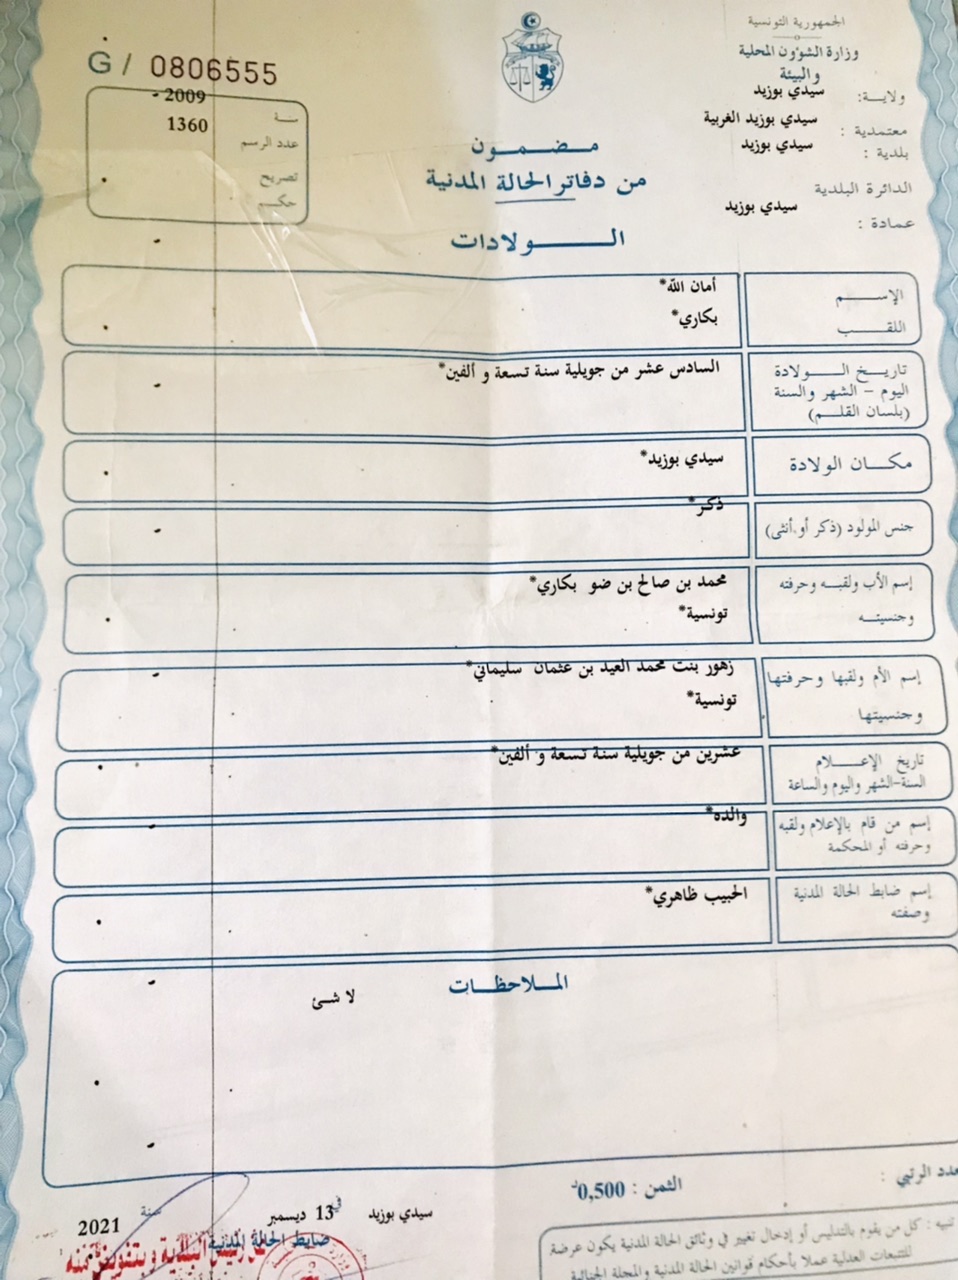 الجمهورية التونسية
وزارة الشؤون المحلية
والبيئة
ولاية: سيدي بوزيد
معتمدية : سيدي بوزيد الغربية
بلدية : سيدي بوزيد
الدائرة البلدية
عمادة : سيدي بوزيد
G / 0806555
سنة 2009
عدد الرسم 1360
تصريح
حكم
مضمون
من دفاتر الحالة المدنية
الولادات
الإسم أمان الله*
اللقب بكاري*
تاريخ الولادة السادس عشر من جويلية سنة تسعة و ألفين*
اليوم - الشهر والسنة
(بلسان القلم)
مكان الولادة سيدي بوزيد*
جنس المولود (ذكر أو أنثى) ذكر*
إسم الأب ولقبه وحرفته محمد بن صالح بن ضو بكاري*
وجنسيته تونسية*
إسم الأم ولقبها وحرفتها زهور بنت محمد العيد بن عثمان سليماني*
وجنسيتها تونسية*
تاريخ الإعلام عشرين من جويلية سنة تسعة و ألفين*
السنة-الشهر واليوم والساعة
إسم من قام بالإعلام ولقبه والده*
وحرفته أو المحكمة
إسم ضابط الحالة المدنية الحبيب ظاهري*
وصفته
الملاحظات
لا شئ
عدد الرتبي :
الثمن : 0,500د
سيدي بوزيد في 13 ديسمبر سنة 2021
ضابط الحالة المدنية
تنبيه : كل من يقوم بالتدليس أو إدخال تغيير في وثائق الحالة المدنية يكون عرضة
للتتبعات العدلية عملا بأحكام قوانين الحالة المدنية والمجلة الجنائية